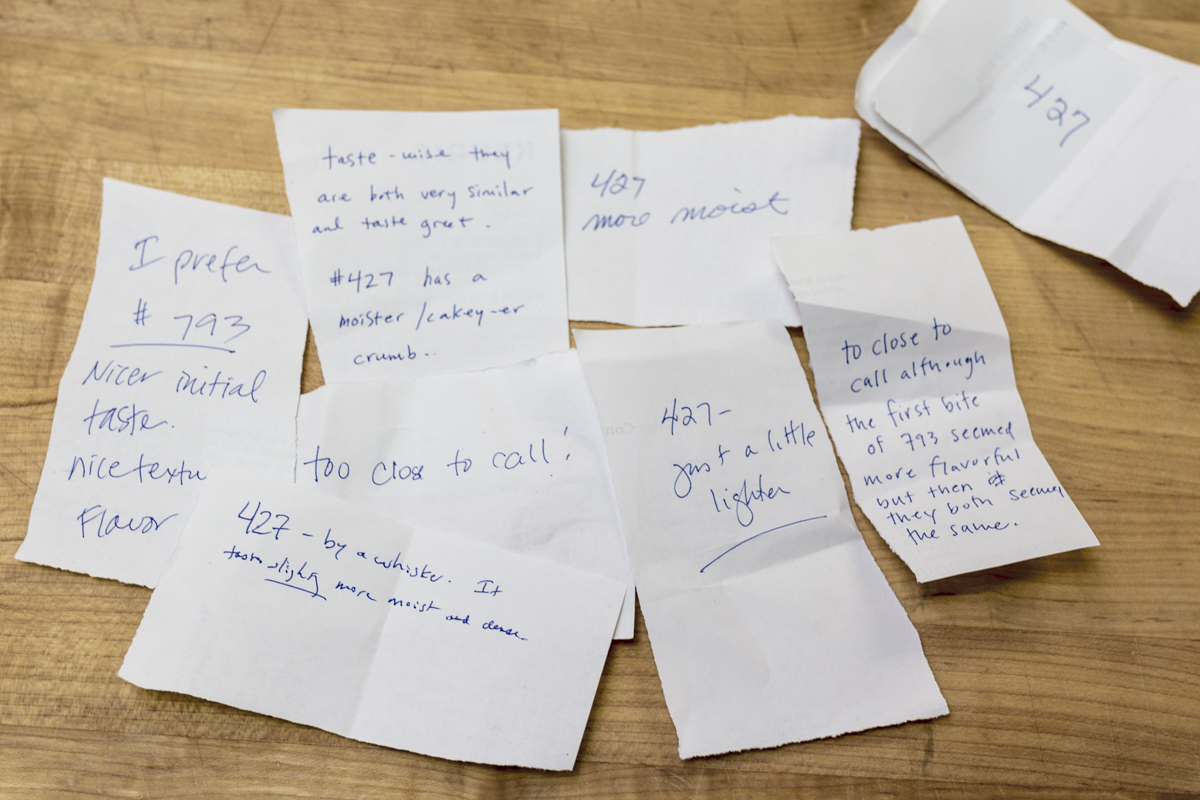 I prefer
# 793
Nicer initial
taste.
nice textu
Flavor
taste-wise they
are both very similar
and taste great.
#427 has a
moister/cakey-er
crumb..
427
more moist
427
too close to call!
427 - by a whisker. It
tastes slightly more moist and dense.
427-
just a little
lighter
to close to
call although
the first bite
of 793 seemed
more flavorful
but then
they both seemed
the same.